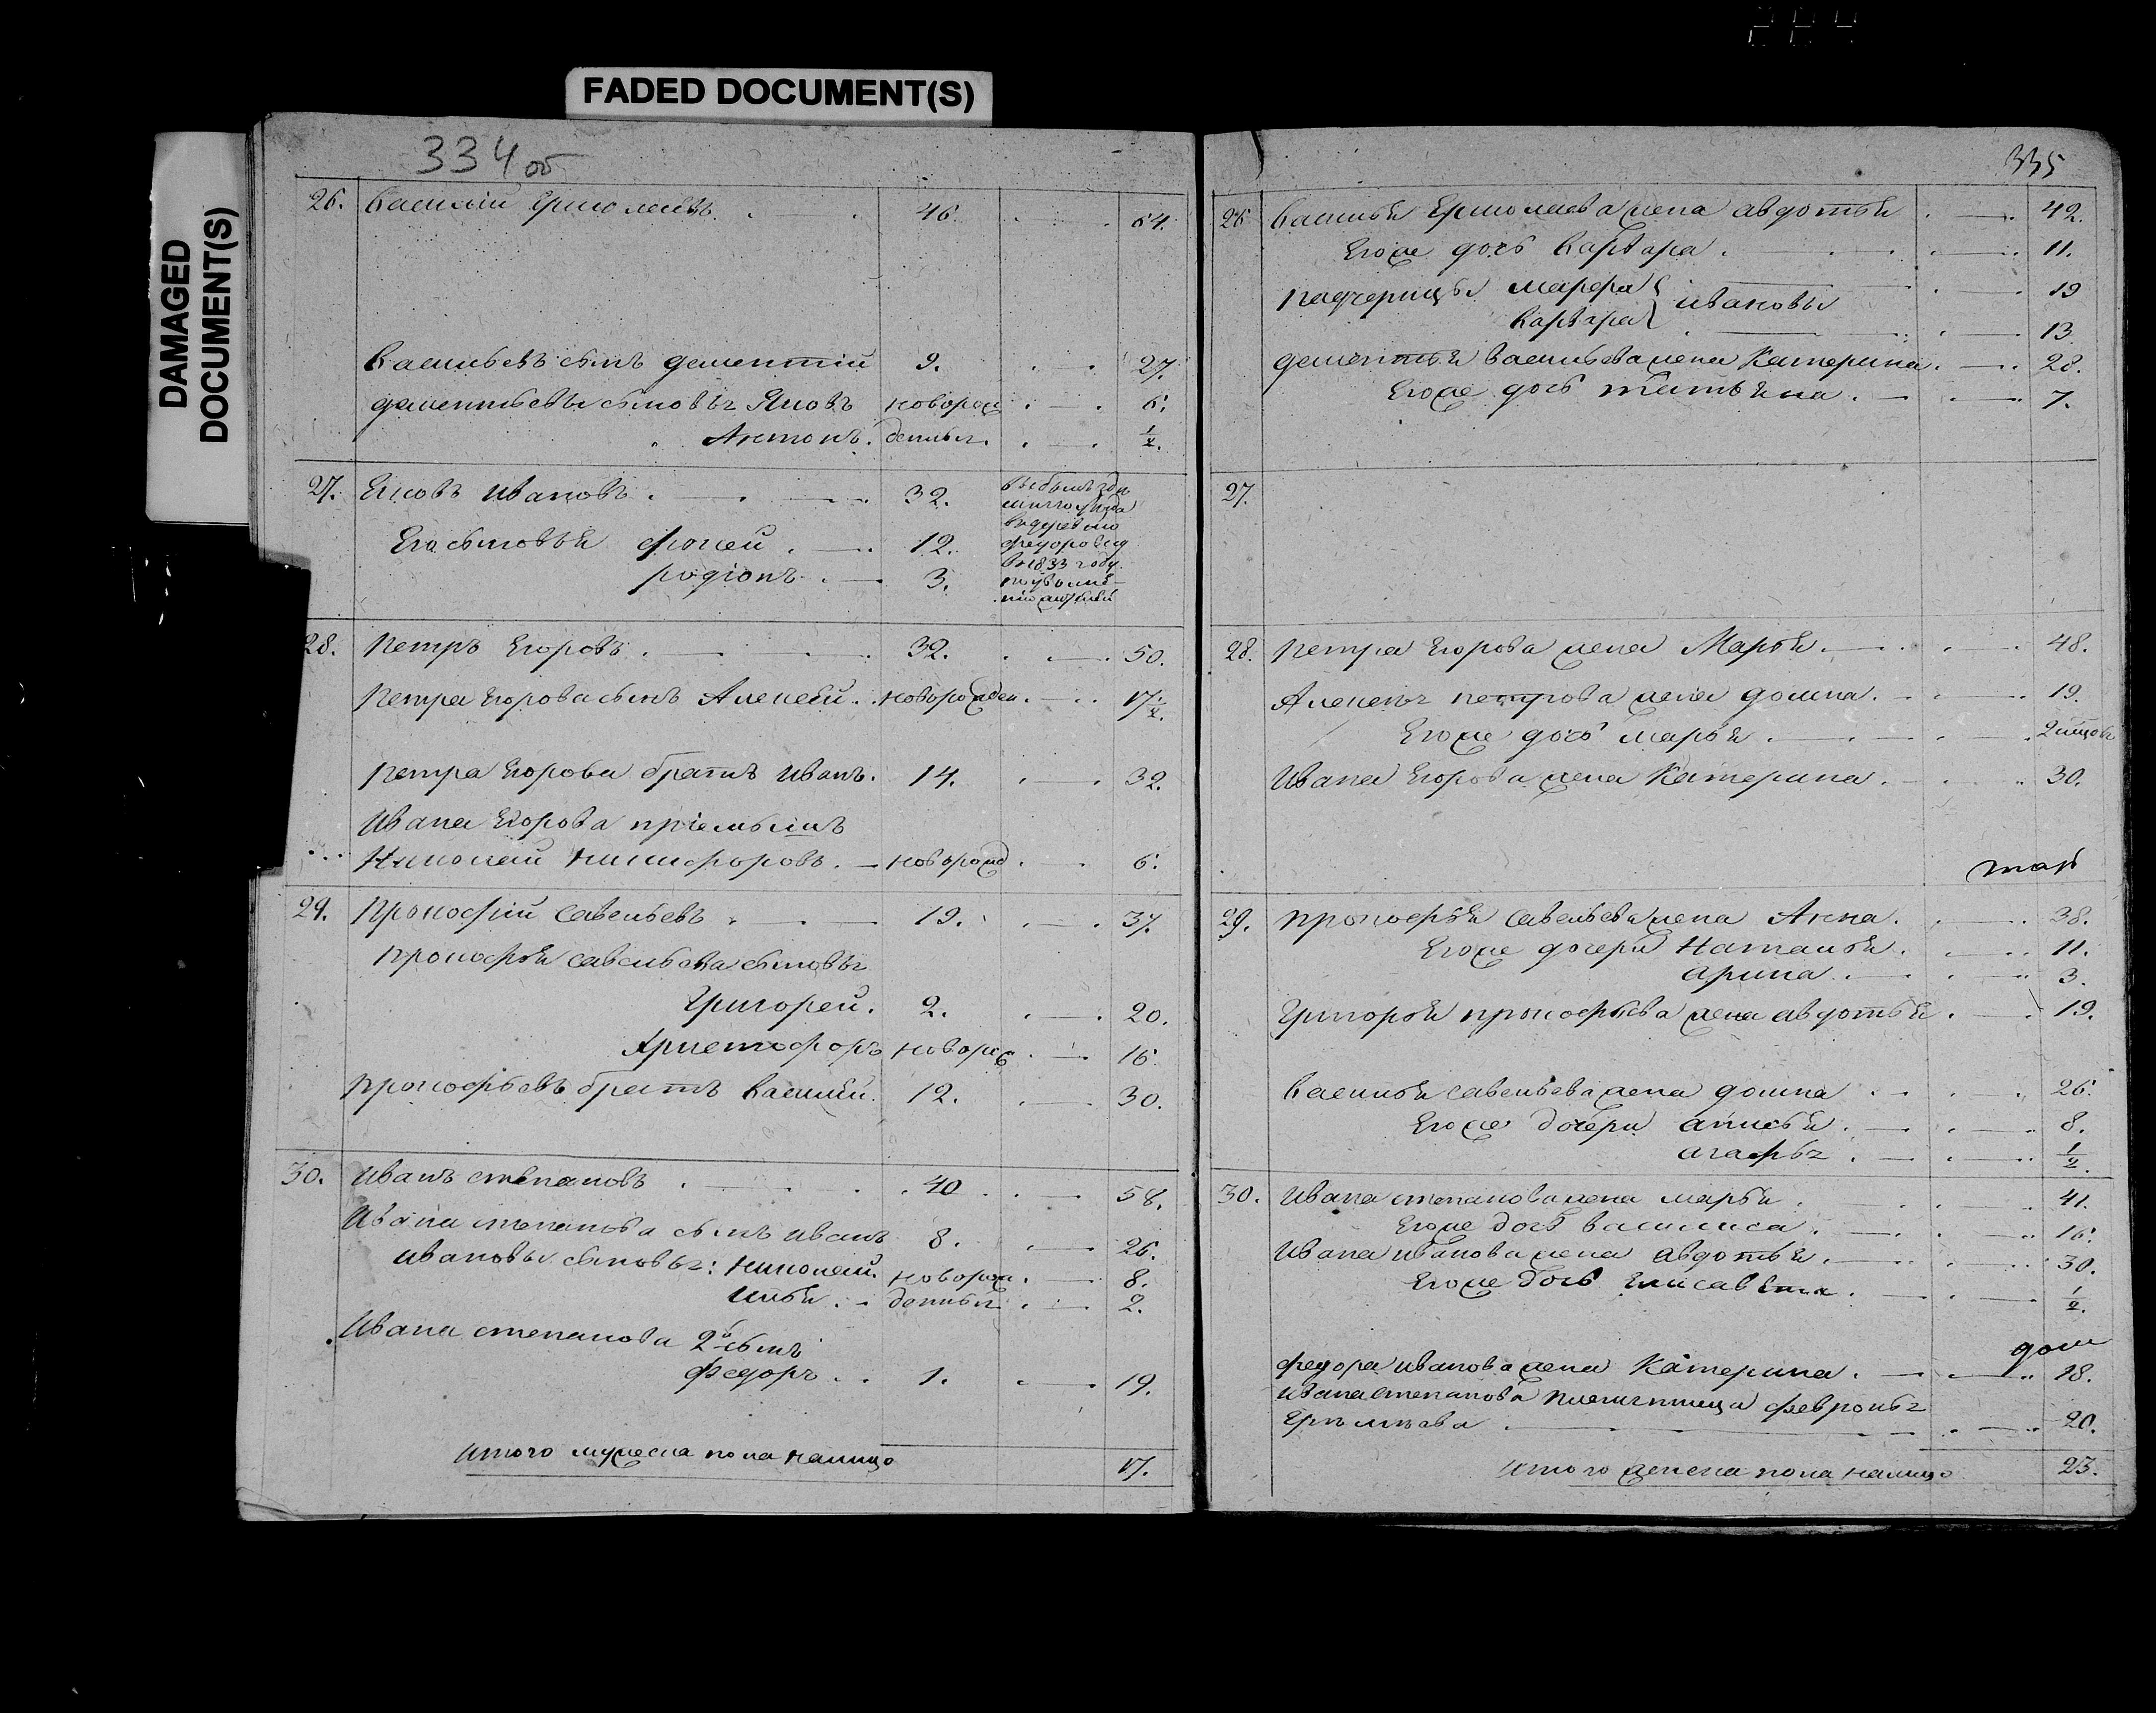 FADED DOCUMENT(S)
DAMAGED
DOCUMENT(S)
334 об
26. Василий Ермолаевъ 46. 64.
Васильевъ сынъ Дементий 9. 27.
Дементьевы сыновья Яковъ новорож 6.
Антонъ. 1/2.
27. Яковъ Ивановъ 32.
Его сыновья Фокей 12.
Родионъ 3.
в 1833 году
28. Петръ Егоровъ 32. 50.
Петра Егорова сынъ Алексей новорожден 17 1/2.
Петра Егорова братъ Иванъ. 14. 32.
Ивана Егорова приемышъ
Николай Никифоровъ новорожд 6.
29. Прокофий Савельевъ 19. 37.
Прокофья Савельева сыновья
Григорей. 2. 20.
Христофоръ новорож 16
Прокофьевъ братъ Василий. 12. 30.
30. Иванъ Степановъ 40 58.
Ивана Степанова сынъ Иванъ 8. 26.
Ивановы сыновья: Николай. новорож. 8.
Илья 2.
Ивана Степанова 2й сынъ
Федоръ 1. 19.
Итого мужеска пола налицо 17.
335
26 Василья Ермолаева жена Авдотья 42.
Его же дочь Варвара 11.
Падчерицы Марфа Ивановы 19
Варвара 13
Дементья Васильева жена Катерина 28.
Его же дочь Татьяна 7.
27.
28. Петра Егорова жена Марья 48.
Алексея Петрова жена Домна 19.
Его же дочь Марья 2
Ивана Егорова жена Катерина 30.
29. Прокофья Савельева жена Анна 38.
Его же дочери Наталья 11.
Арина 3.
Григорья Прокофьева жена Авдотья 19.
Василья Савельева жена Домна 26.
Его же дочери Анисья 8.
Агафья 1/2.
30. Ивана Степанова жена Марья 41.
Его же дочь Василиса 16.
Ивана Иванова жена Авдотья 30.
Его же дочь Елисавета 1/2.
Федора Иванова жена Катерина 18.
Ивана Степанова племянница Февронья
20.
Итого женска пола налицо 23.